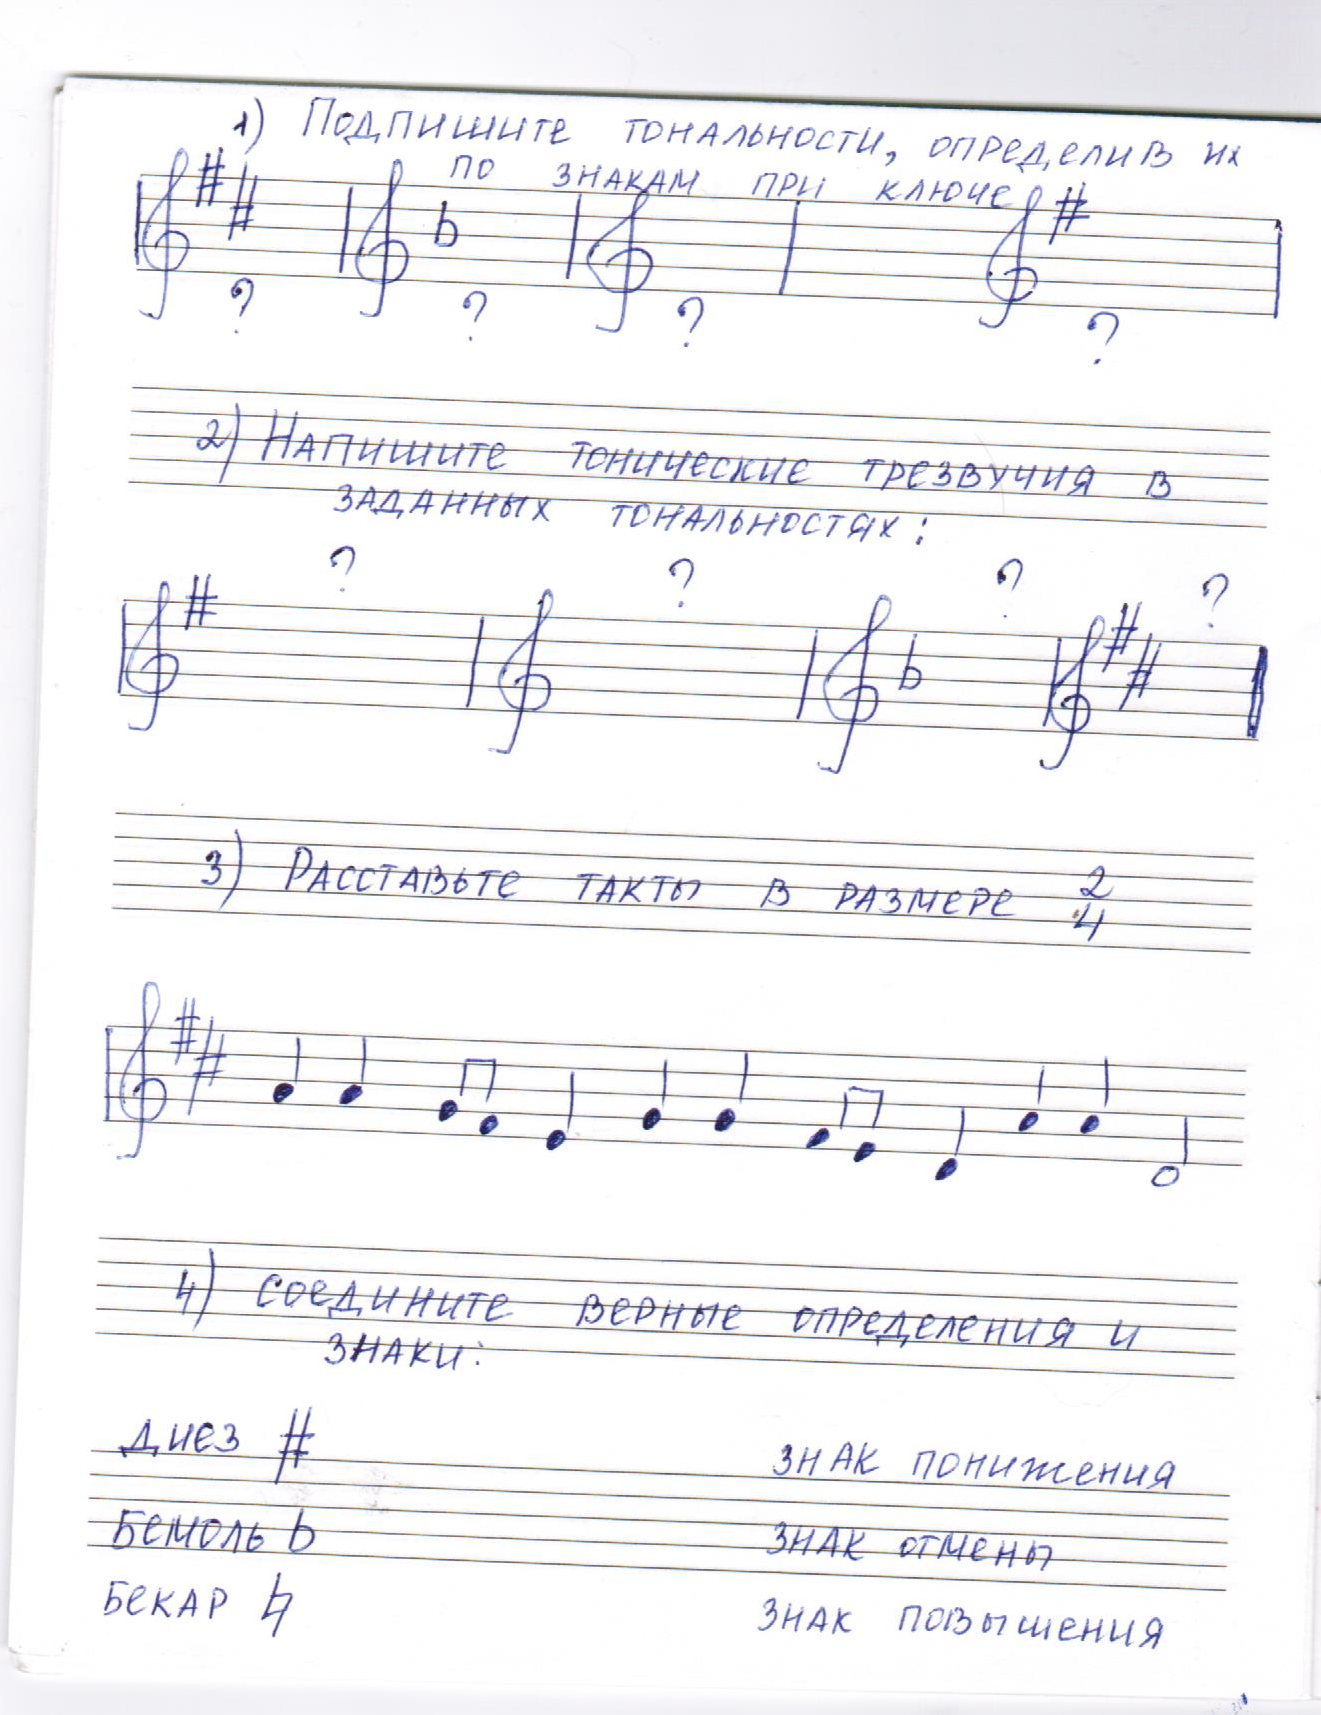 1) Подпишите тональности, определив их
по знакам при ключе
? ? ? ?
2) Напишите тонические трезвучия в
заданных тональностях:
? ? ? ?
3) Расставьте такты в размере 2/4
4) Соедините верные определения и
знаки:
Диез # знак понижения
Бемоль b знак отмены
Бекар ♮ знак повышения